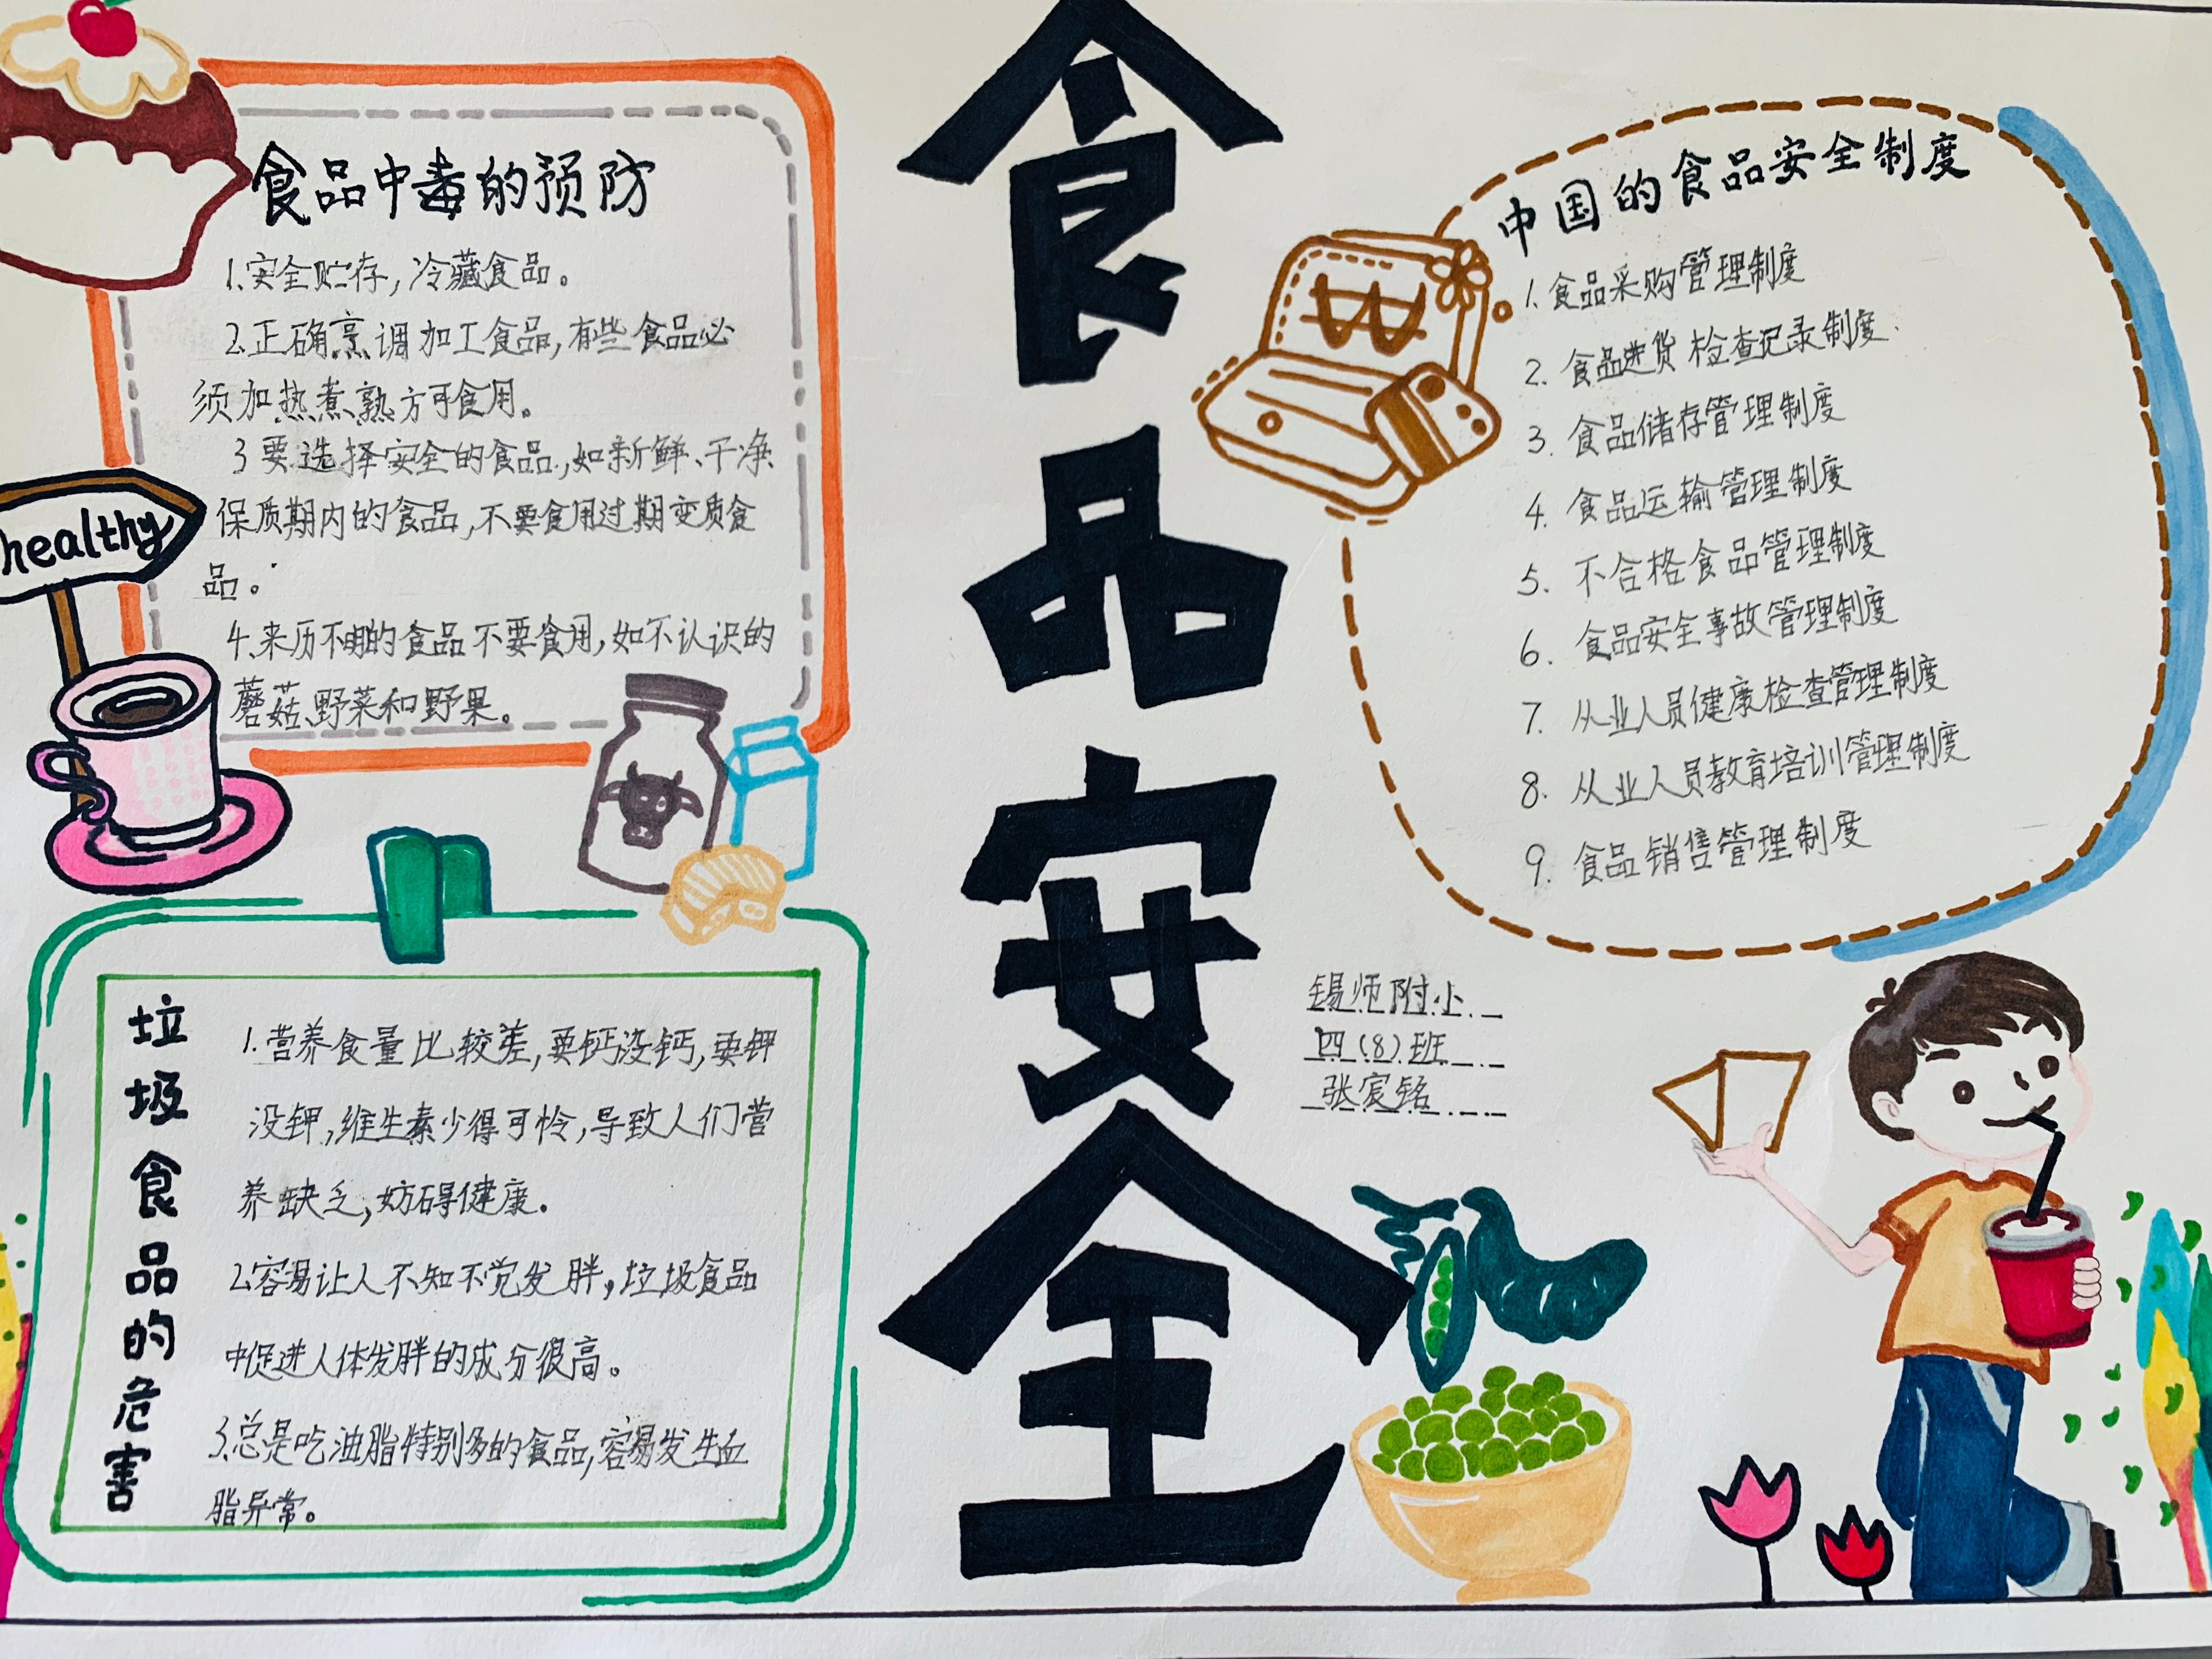 食品安全
食品中毒的预防
1.安全贮存,冷藏食品。
2.正确烹调加工食品,有些食品必
须加热煮熟方可食用。
3要选择安全的食品,如新鲜、干净
保质期内的食品,不要食用过期变质食
品。
4.来历不明的食品不要食用,如不认识的
蘑菇、野菜和野果。
healthy
垃圾食品的危害
1.营养食量比较差,要钙没钙,要钾
没钾,维生素少得可怜,导致人们营
养缺乏,妨碍健康.
2.容易让人不知不觉发胖,垃圾食品
中促进人体发胖的成分很高。
3.总是吃油脂特别多的食品,容易发生血
脂异常。
中国的食品安全制度
1.食品采购管理制度
2.食品进货检查记录制度.
3.食品储存管理制度
4.食品运输管理制度
5.不合格食品管理制度
6.食品安全事故管理制度
7.从业人员健康检查管理制度
8.从业人员教育培训管理制度
9.食品销售管理制度
W
锡师附小
四(8)班
张宸铭